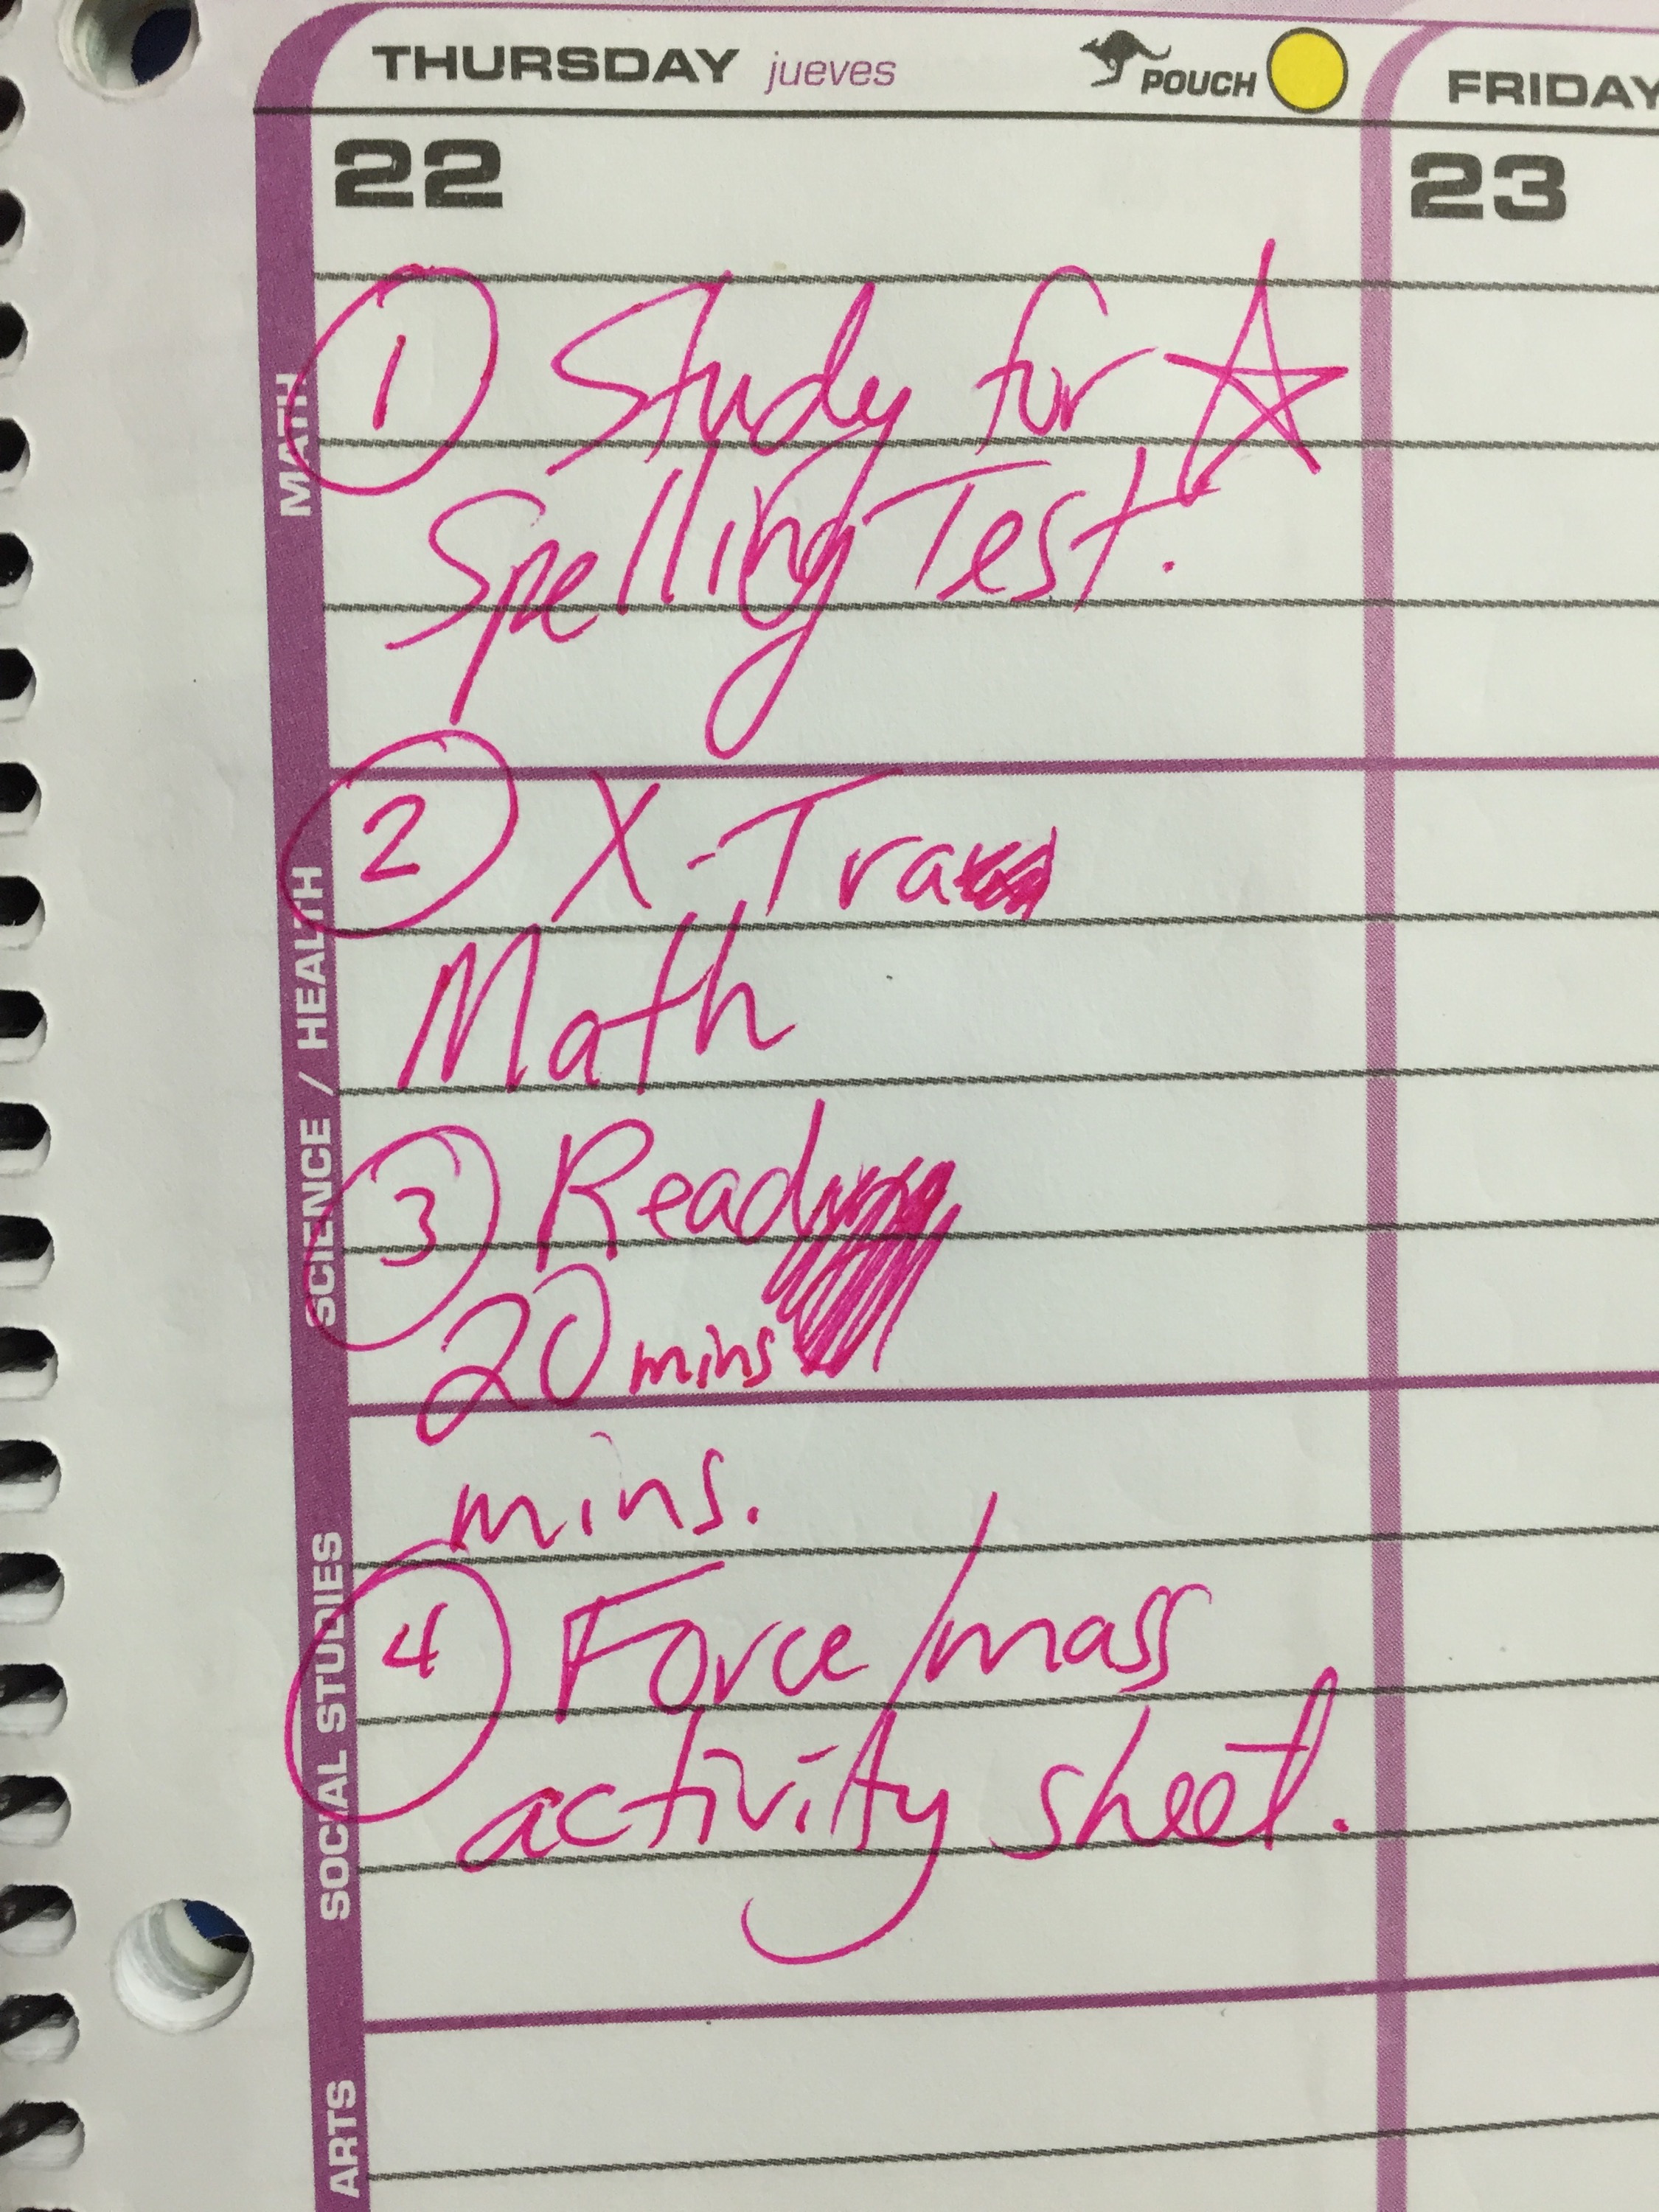 THURSDAY jueves POUCH FRIDAY
22 23
MATH
1 Study for
Spelling Test.
SCIENCE / HEALTH
2 X-Tra
Math
3 Read
20 mins
mins.
SOCIAL STUDIES
4 Force/mass
activity sheet.
ARTS